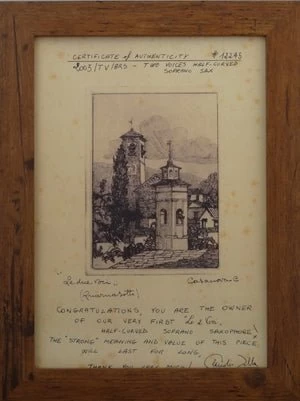 CERTIFICATE of AUTHENTICITY # 12243
2003/TV/BRS - TWO VOICES HALF-CURVED
SOPRANO SAX
"Le due Voci"
Casanova E
(Quarnasetti)
CONGRATULATIONS, YOU ARE THE OWNER
OF OUR VERY FIRST "Le 2 Voci
HALF-CURVED SOPRANO SAXOPHONE!
THE "STRONG" MEANING AND VALUE OF THIS PIECE
WILL LAST FOR LONG,
THANK YOU VERY MUCH!